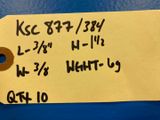 KSC 877/384
L-3/8" H-1 1/2
W-3/8 WGHT-6g
QTY 10